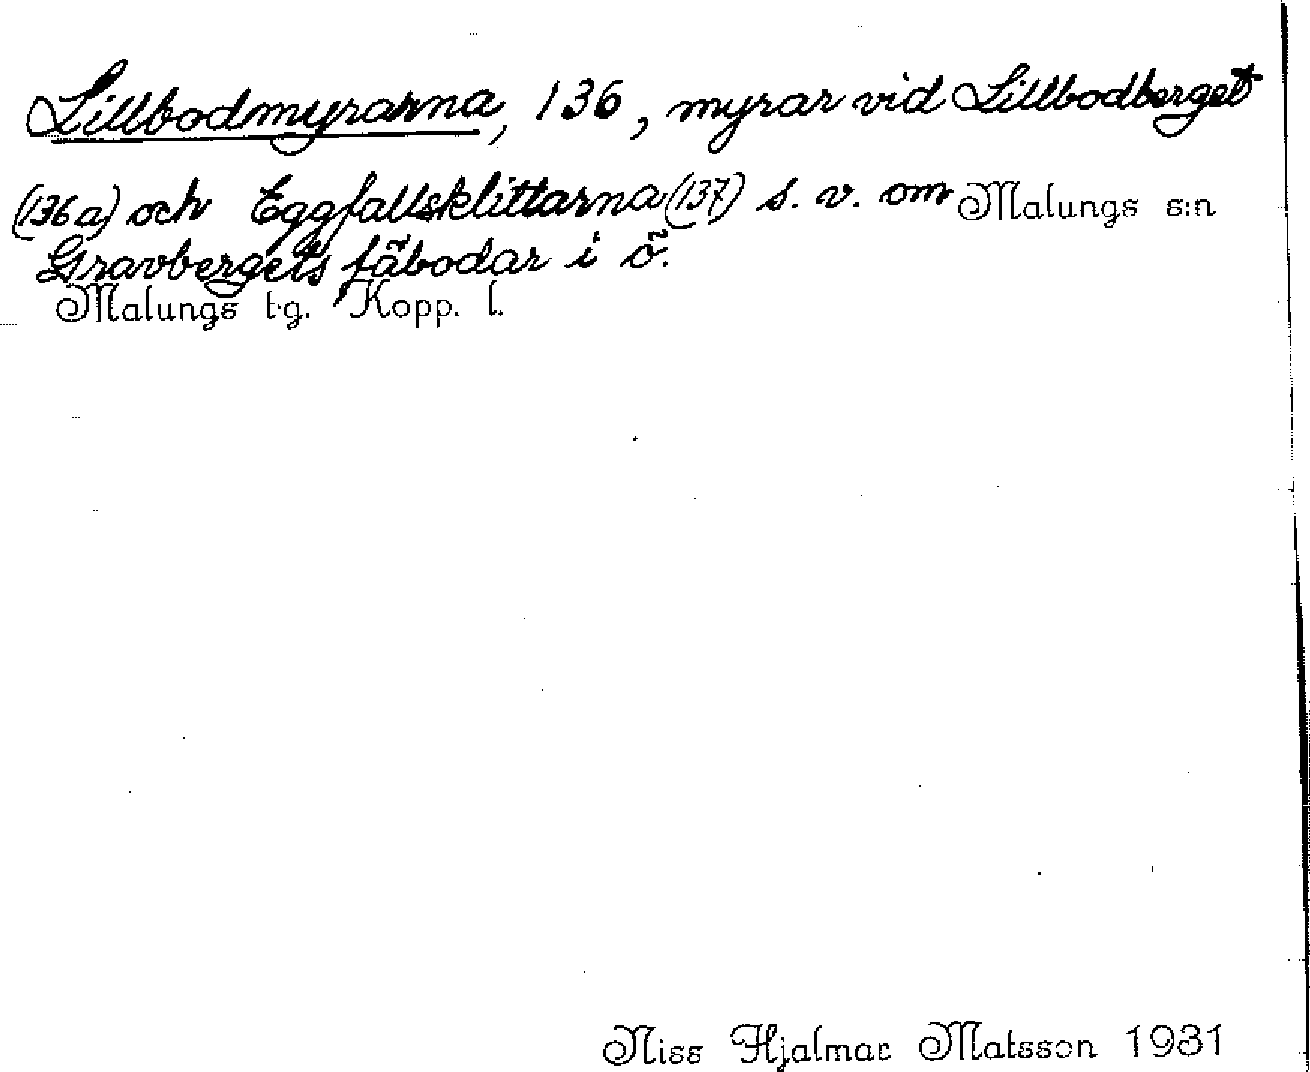 Lillbodmyrarna, 136, myrar vid Lillbodberget
(136a) och Eggfallsklittarna (137) s. v. om Malungs s:n
Gravbergets fäbodar i ö.
Malungs t.g. Kopp. l.
Niss Hjalmar Matsson 1931